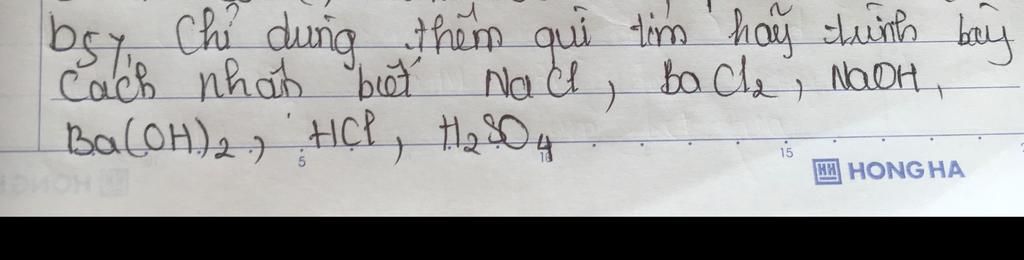 b5/, Chỉ dùng thêm quì tím hãy trình bày
Cách nhận biết NaCl, BaCl2, NaOH,
Ba(OH)2, HCl, H2SO4
5 10 15
HH HONG HA